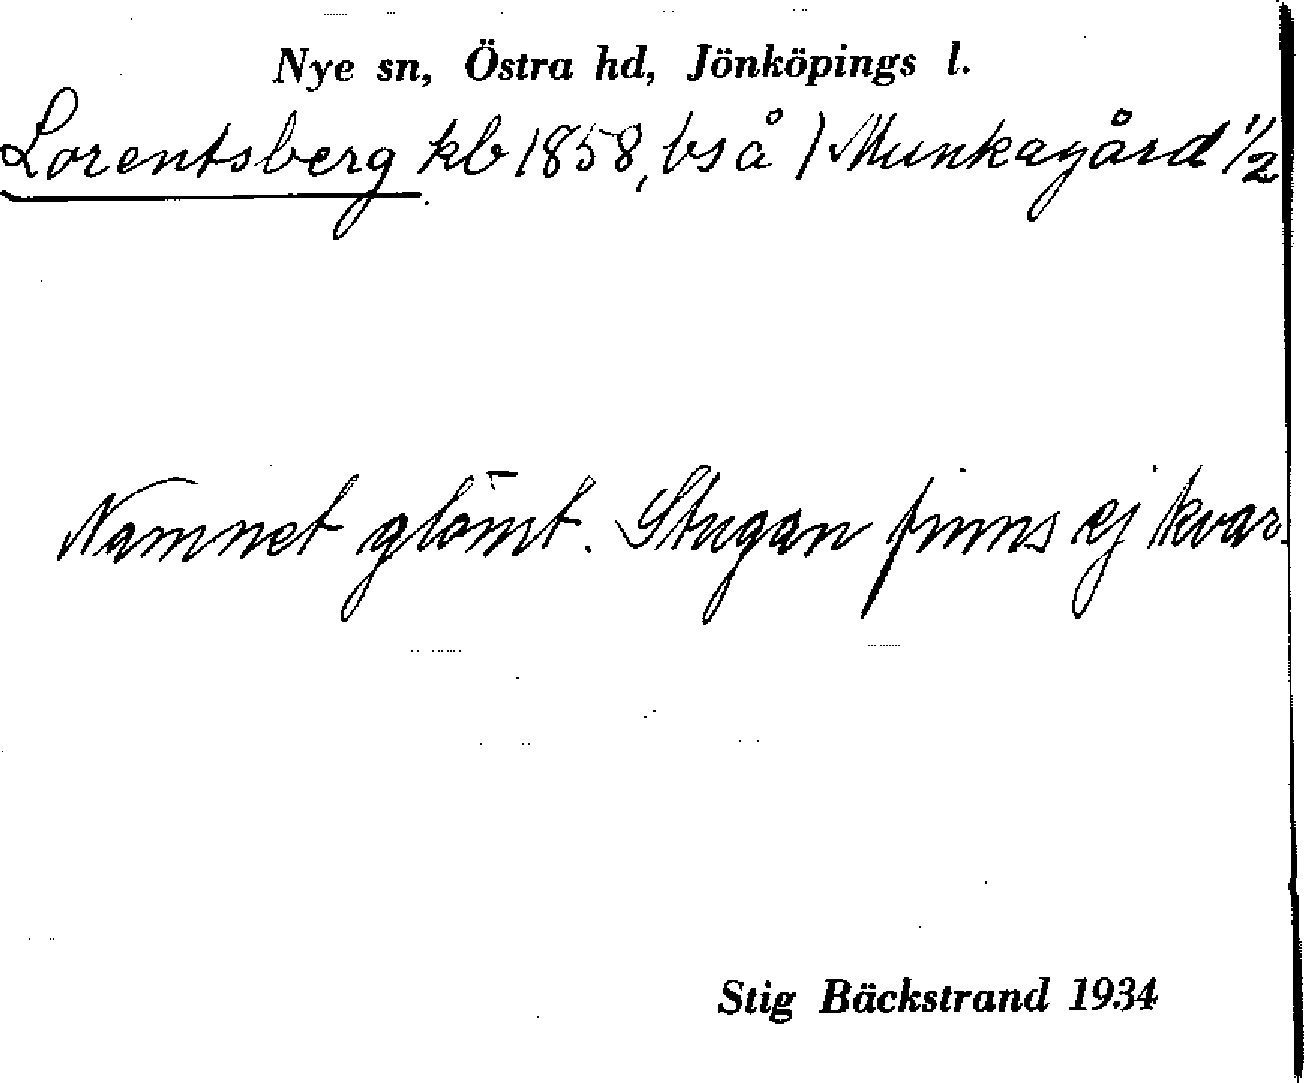 Nye sn, Östra hd, Jönköpings l.
Lorentsberg kb 1858, bs å / Munkagård 1/2
Namnet glömt. Stugan finns ej kvar.
Stig Bäckstrand 1934